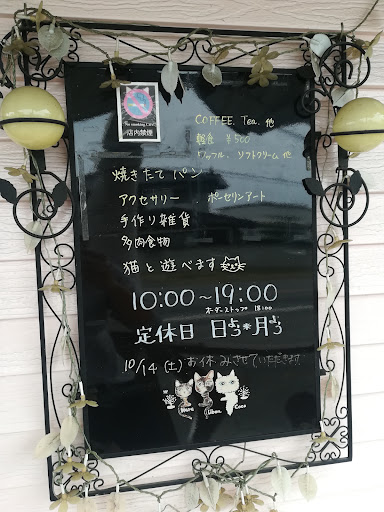 No smoking Cafe
店内禁煙
COFFEE. Tea. 他
軽食 ¥500
ワッフル. ソフトクリーム 他
焼きたて パン
アクセサリー ポーセリンアート
手作り雑貨
多肉食物
猫と遊べます
10:00〜19:00
オーダーストップ 18:00
定休日 日よう*月よう
10/14 (土) お休みさせていただきます
Coco